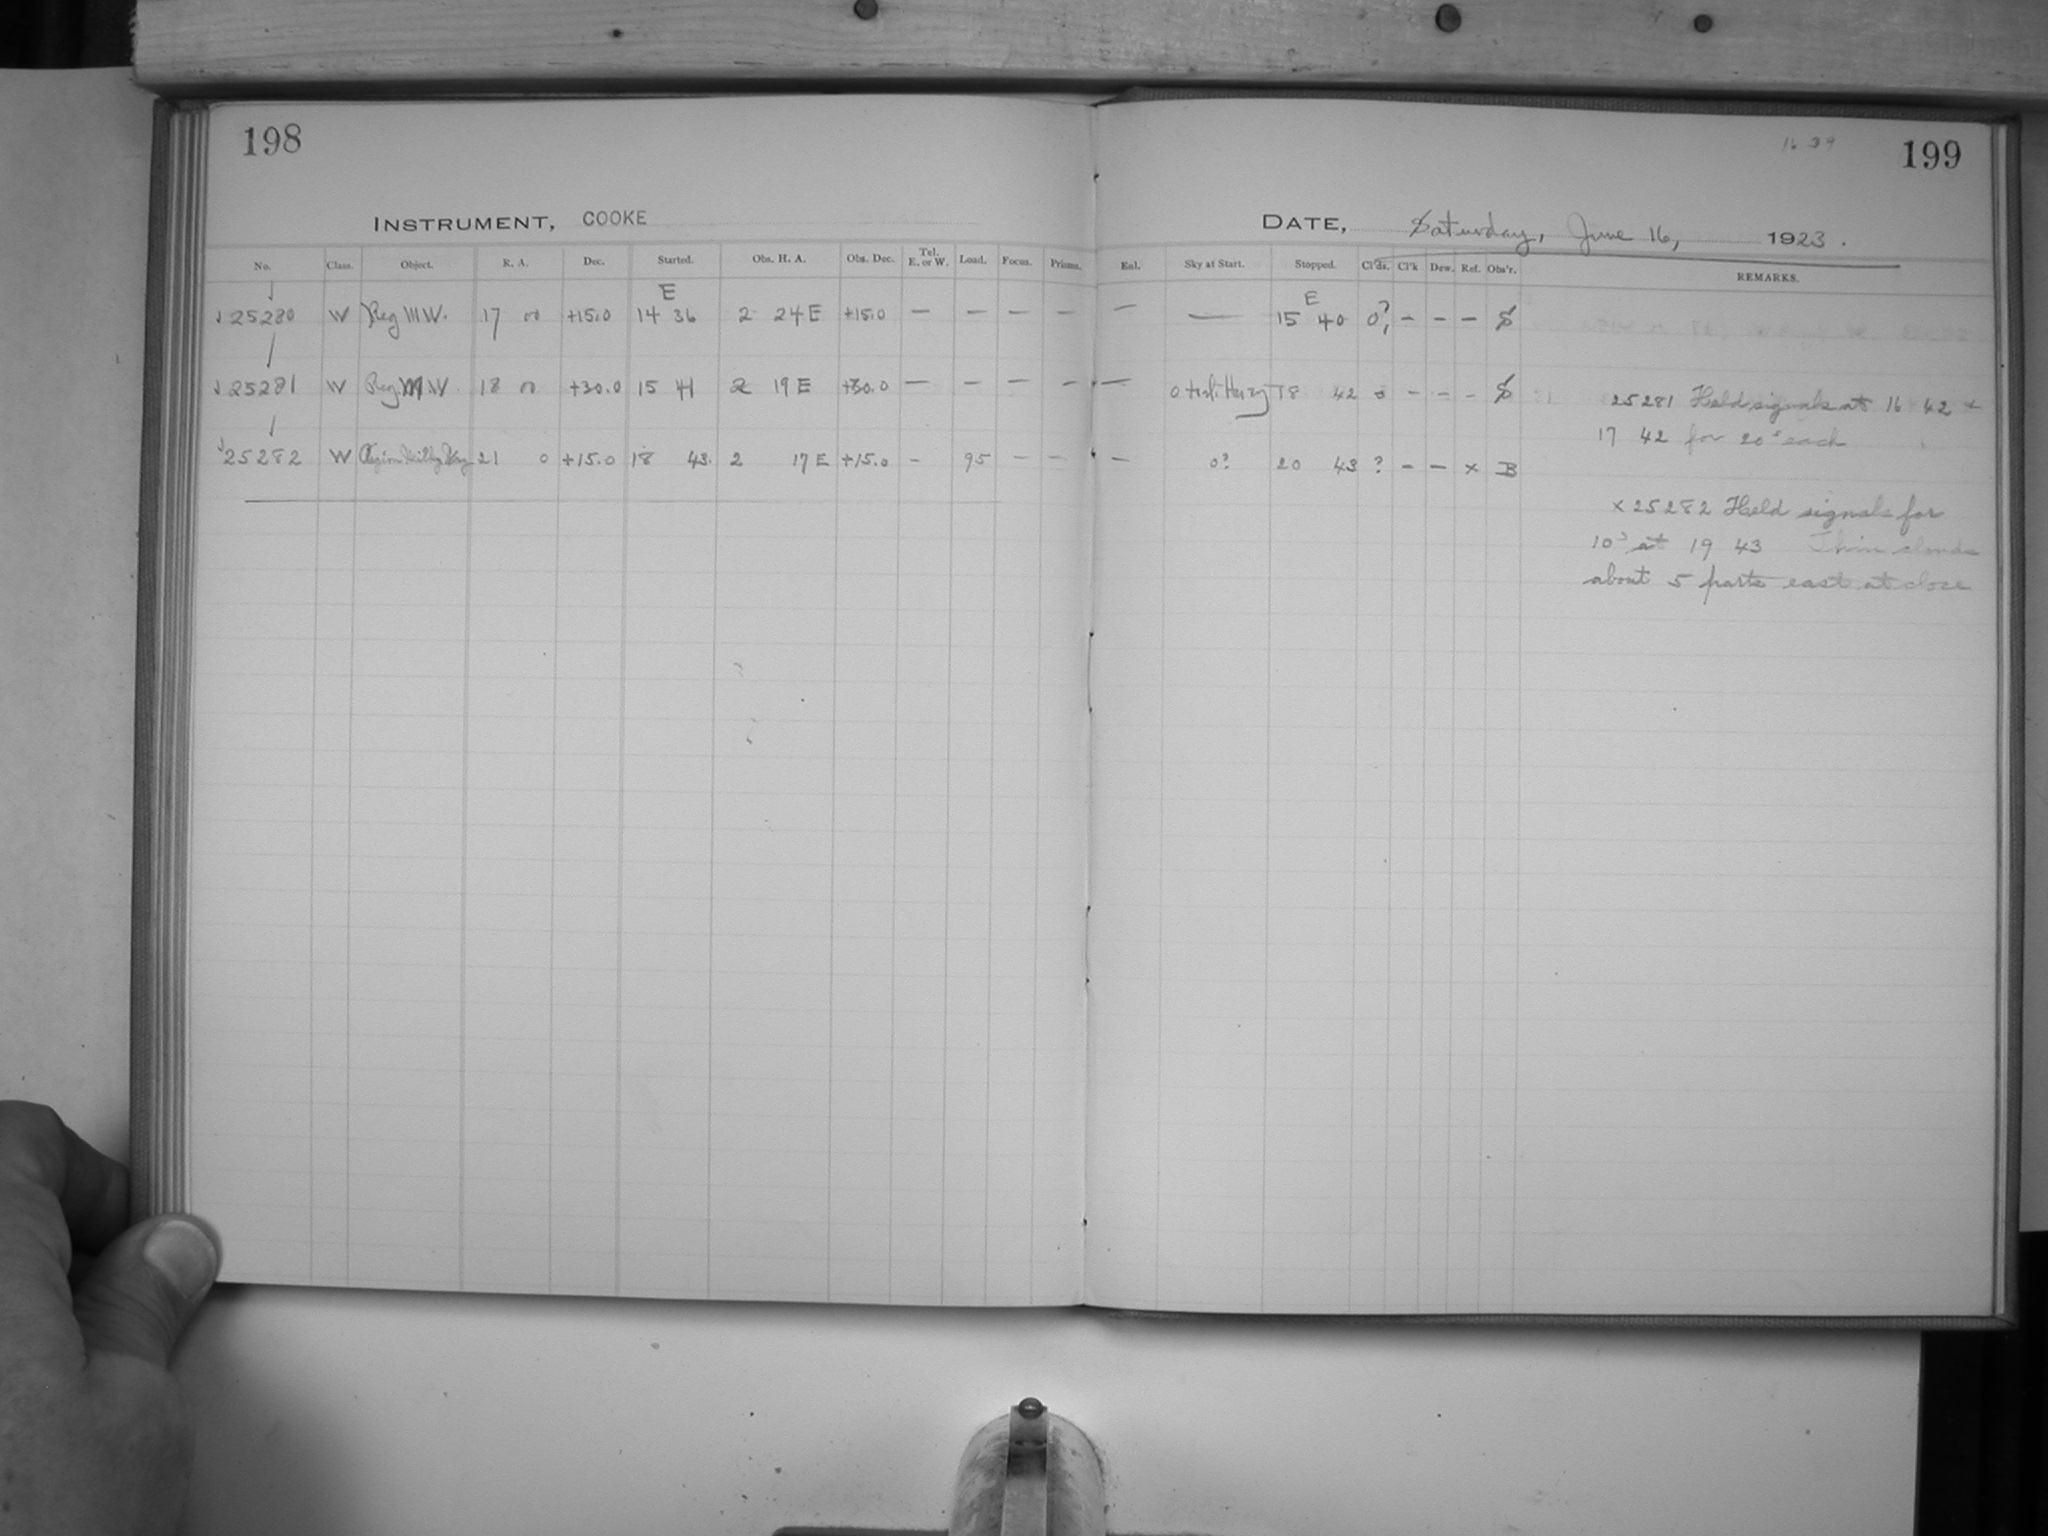 198
16 39
199
INSTRUMENT, COOKE
DATE, Saturday, June 16, 1923.
No. Class. Object. R. A. Dec. Started. Obs. H. A. Obs. Dec. Tel. E. or W. Load. Focus. Prisms. Enl. Sky at Start. Stopped. Cl'ds. Cl'k Dew. Ref. Obs'r. REMARKS.
E E
25280 W Reg M W. 17 00 +15.0 14 36 2 24 E +15.0 — — — — — — 15 40 0? — — — S
25281 W Reg. M W. 18 00 +30.0 15 41 2 19 E +30.0 — — — — — 0 18 42 0 — — — S
25281 Held signals at 16 42 +
17 42 for 20s each
25282 W Region Milky Way 21 0 +15.0 18 43. 2 17 E +15.0 - 95 — — — 0? 20 43 ? — — x B
x 25282 Held signals for
10s at 19 43 Thin clouds
about 5 parts east at close